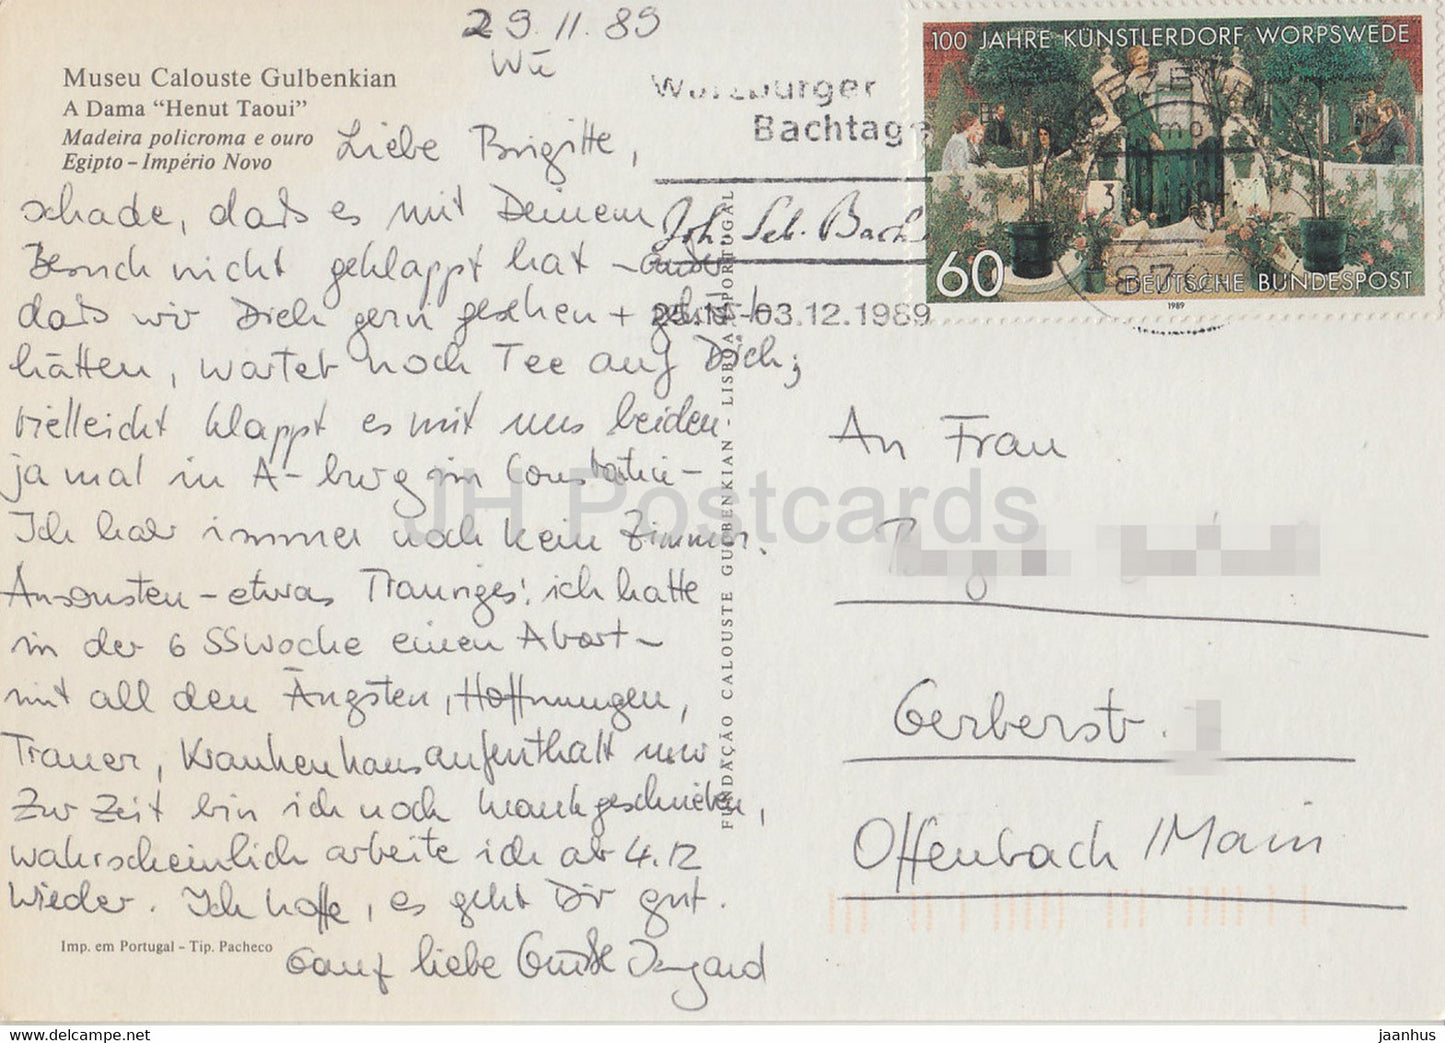 29.11.89
Wü
Museu Calouste Gulbenkian
A Dama “Henut Taoui”
Madeira policroma e ouro
Egipto – Império Novo
Liebe Brigitte,
schade, daß es mit Deinem
Besuch nicht geklappt hat –
daß wir Dich gern gesehen +
hätten, wartet noch Tee auf Dich;
vielleicht klappt es mit uns beiden
ja mal in A-burg im
Ich hab immer noch kein Zimmer.
Ansonsten – etwas Trauriges: ich hatte
in der 6 SSWoche einen Abort –
mit all den Ängsten, Hoffnungen,
Trauer, Krankenhausaufenthalt usw
Zur Zeit bin ich noch krankgeschrieben,
wahrscheinlich arbeite ich ab 4.12
wieder. Ich hoffe, es geht Dir gut.
Ganz liebe Grüße Irmgard
Imp. em Portugal – Tip. Pacheco
FUNDAÇÃO CALOUSTE GULBENKIAN - LISBOA PORTUGAL
Würzburger
Bachtage
Joh. Seb. Bach
25.11.-03.12.1989
100 JAHRE KÜNSTLERDORF WORPSWEDE
60
DEUTSCHE BUNDESPOST
1989
An Frau
Gerberstr.
Offenbach/Main
JH Postcards
www.delcampe.net
jaanhus